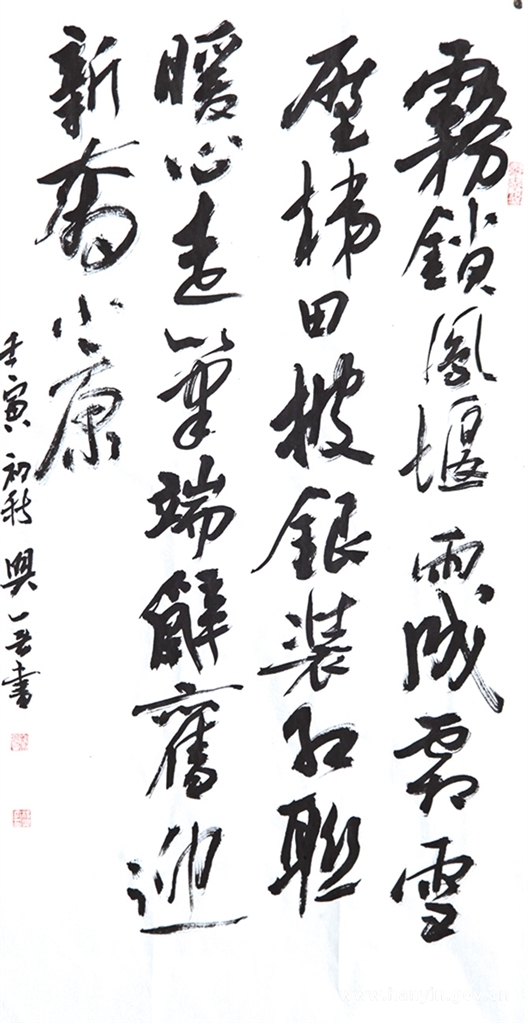 霧鎖鳳堰雨成霜雪
壓梯田披銀裝紅聯
暖心走筆端辭舊迎
新奔小康
壬寅初秋興吾書